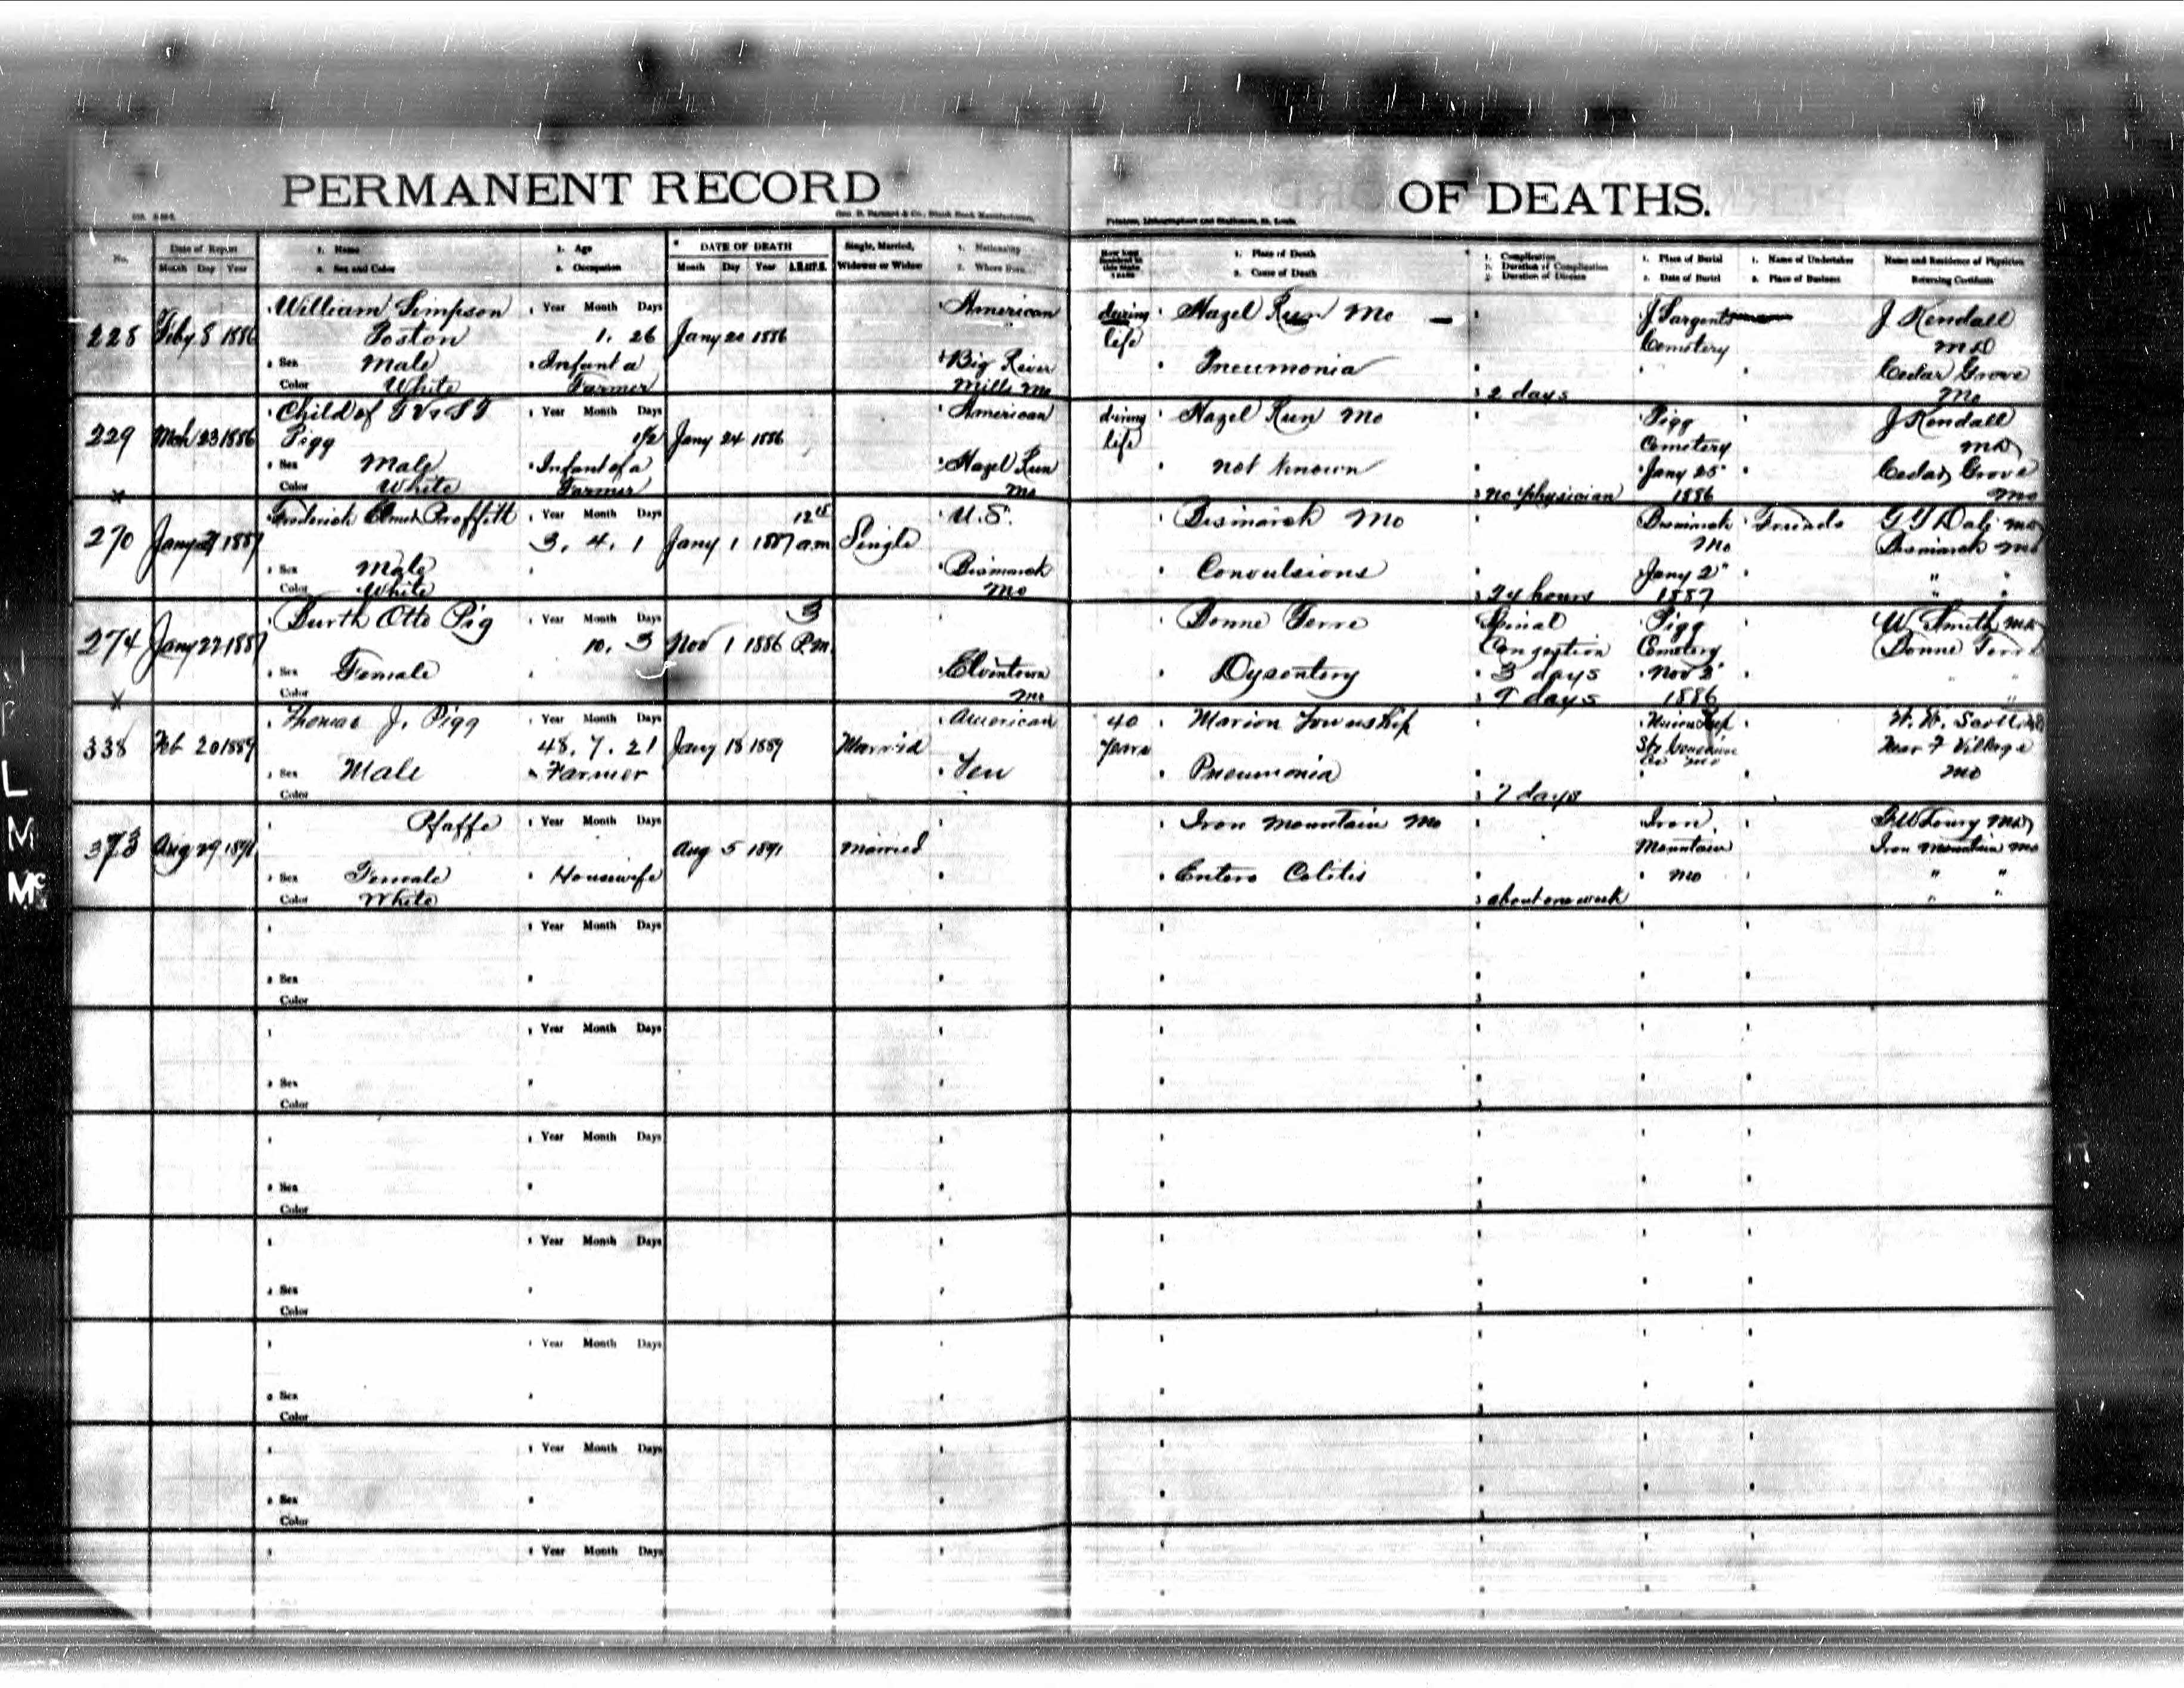 PERMANENT RECORD OF DEATHS.
Geo. D. Barnard & Co., Blank Book Manufacturers,
Printers, Lithographers and Stationers, St. Louis.
No.
Date of Report
Month Day Year
1. Name
2. Sex and Color
1. Age
2. Occupation
DATE OF DEATH
Month Day Year A.M. or P.M.
Single, Married,
Widower or Widow
1. Nationality
2. Where Born.
How long
Resident in
this State
YEARS
1. Place of Death
2. Cause of Death
1. Complication
2. Duration of Complication
3. Duration of Disease
1. Place of Burial
2. Date of Burial
1. Name of Undertaker
2. Place of Business
Name and Residence of Physician
Returning Certificate
228 Feby 8 1886
William Simpson
Poston
Sex Male
Color White
Year Month Days
1. 26
Infant a
Farmer
Jany 20 1886
American
Big River
Mills Mo
during
life
Hazel Run Mo
Pneumonia
2 days
J Sargents
Cemetery
J Kendall
MD
Cedar Grove
Mo
229 Mch 23 1886
Child of G V & S I
Pigg
Sex Male
Color White
Year Month Days
1/2
Infant of a
Farmer
Jany 24 1886
American
Hazel Run
Mo
during
life
Hazel Run Mo
not known
no physician
Pigg
Cemetery
Jany 25
1886
J Kendall
MD
Cedar Grove
Mo
x
270 Jany 1887
Frederick Elmer Proffitt
Sex Male
Color White
Year Month Days
3. 4. 1
Jany 1 1887 12 15 a.m
Single
U.S.
Bismarck
Mo
Bismarck Mo
Convulsions
24 hours
Bismarck
Mo
Jany 2"
1887
Friends
G T Dale MD
Bismarck Mo
" "
" "
274 Jany 22 1887
Burth Otto Pig
Sex Female
Color
Year Month Days
10. 3
Nov 1 1886 3 P.m.
Elvintown
Mo
Bonne Terre
Dysentery
Spinal
Congestion
3 days
9 days
Pigg
Cemetery
Nov 2"
1886
W Smith MD
Bonne Terre
" "
x
338 Feb 20 1889
Thomas J. Pigg
Sex Male
Color
Year Month Days
48. 7. 21
Farmer
Jany 18 1889
Married
American
Ten
40
Years
Marion Township
Pneumonia
7 days
Union Twp
Ste Genevieve
Co Mo
Near F Village
Mo
373 Aug 29 1891
Pfaffe
Sex Female
Color White
Year Month Days
Housewife
Aug 5 1891
Married
Iron Mountain Mo
Entero Colitis
about one week
Iron
Mountain
Mo
Iron Mountain Mo
" "
" "
Year Month Days
Sex
Color
Year Month Days
Sex
Color
Year Month Days
Sex
Color
Year Month Days
Sex
Color
Year Month Days
Sex
Color
Year Month Days
Sex
Color
Year Month Days
L
M
Mc